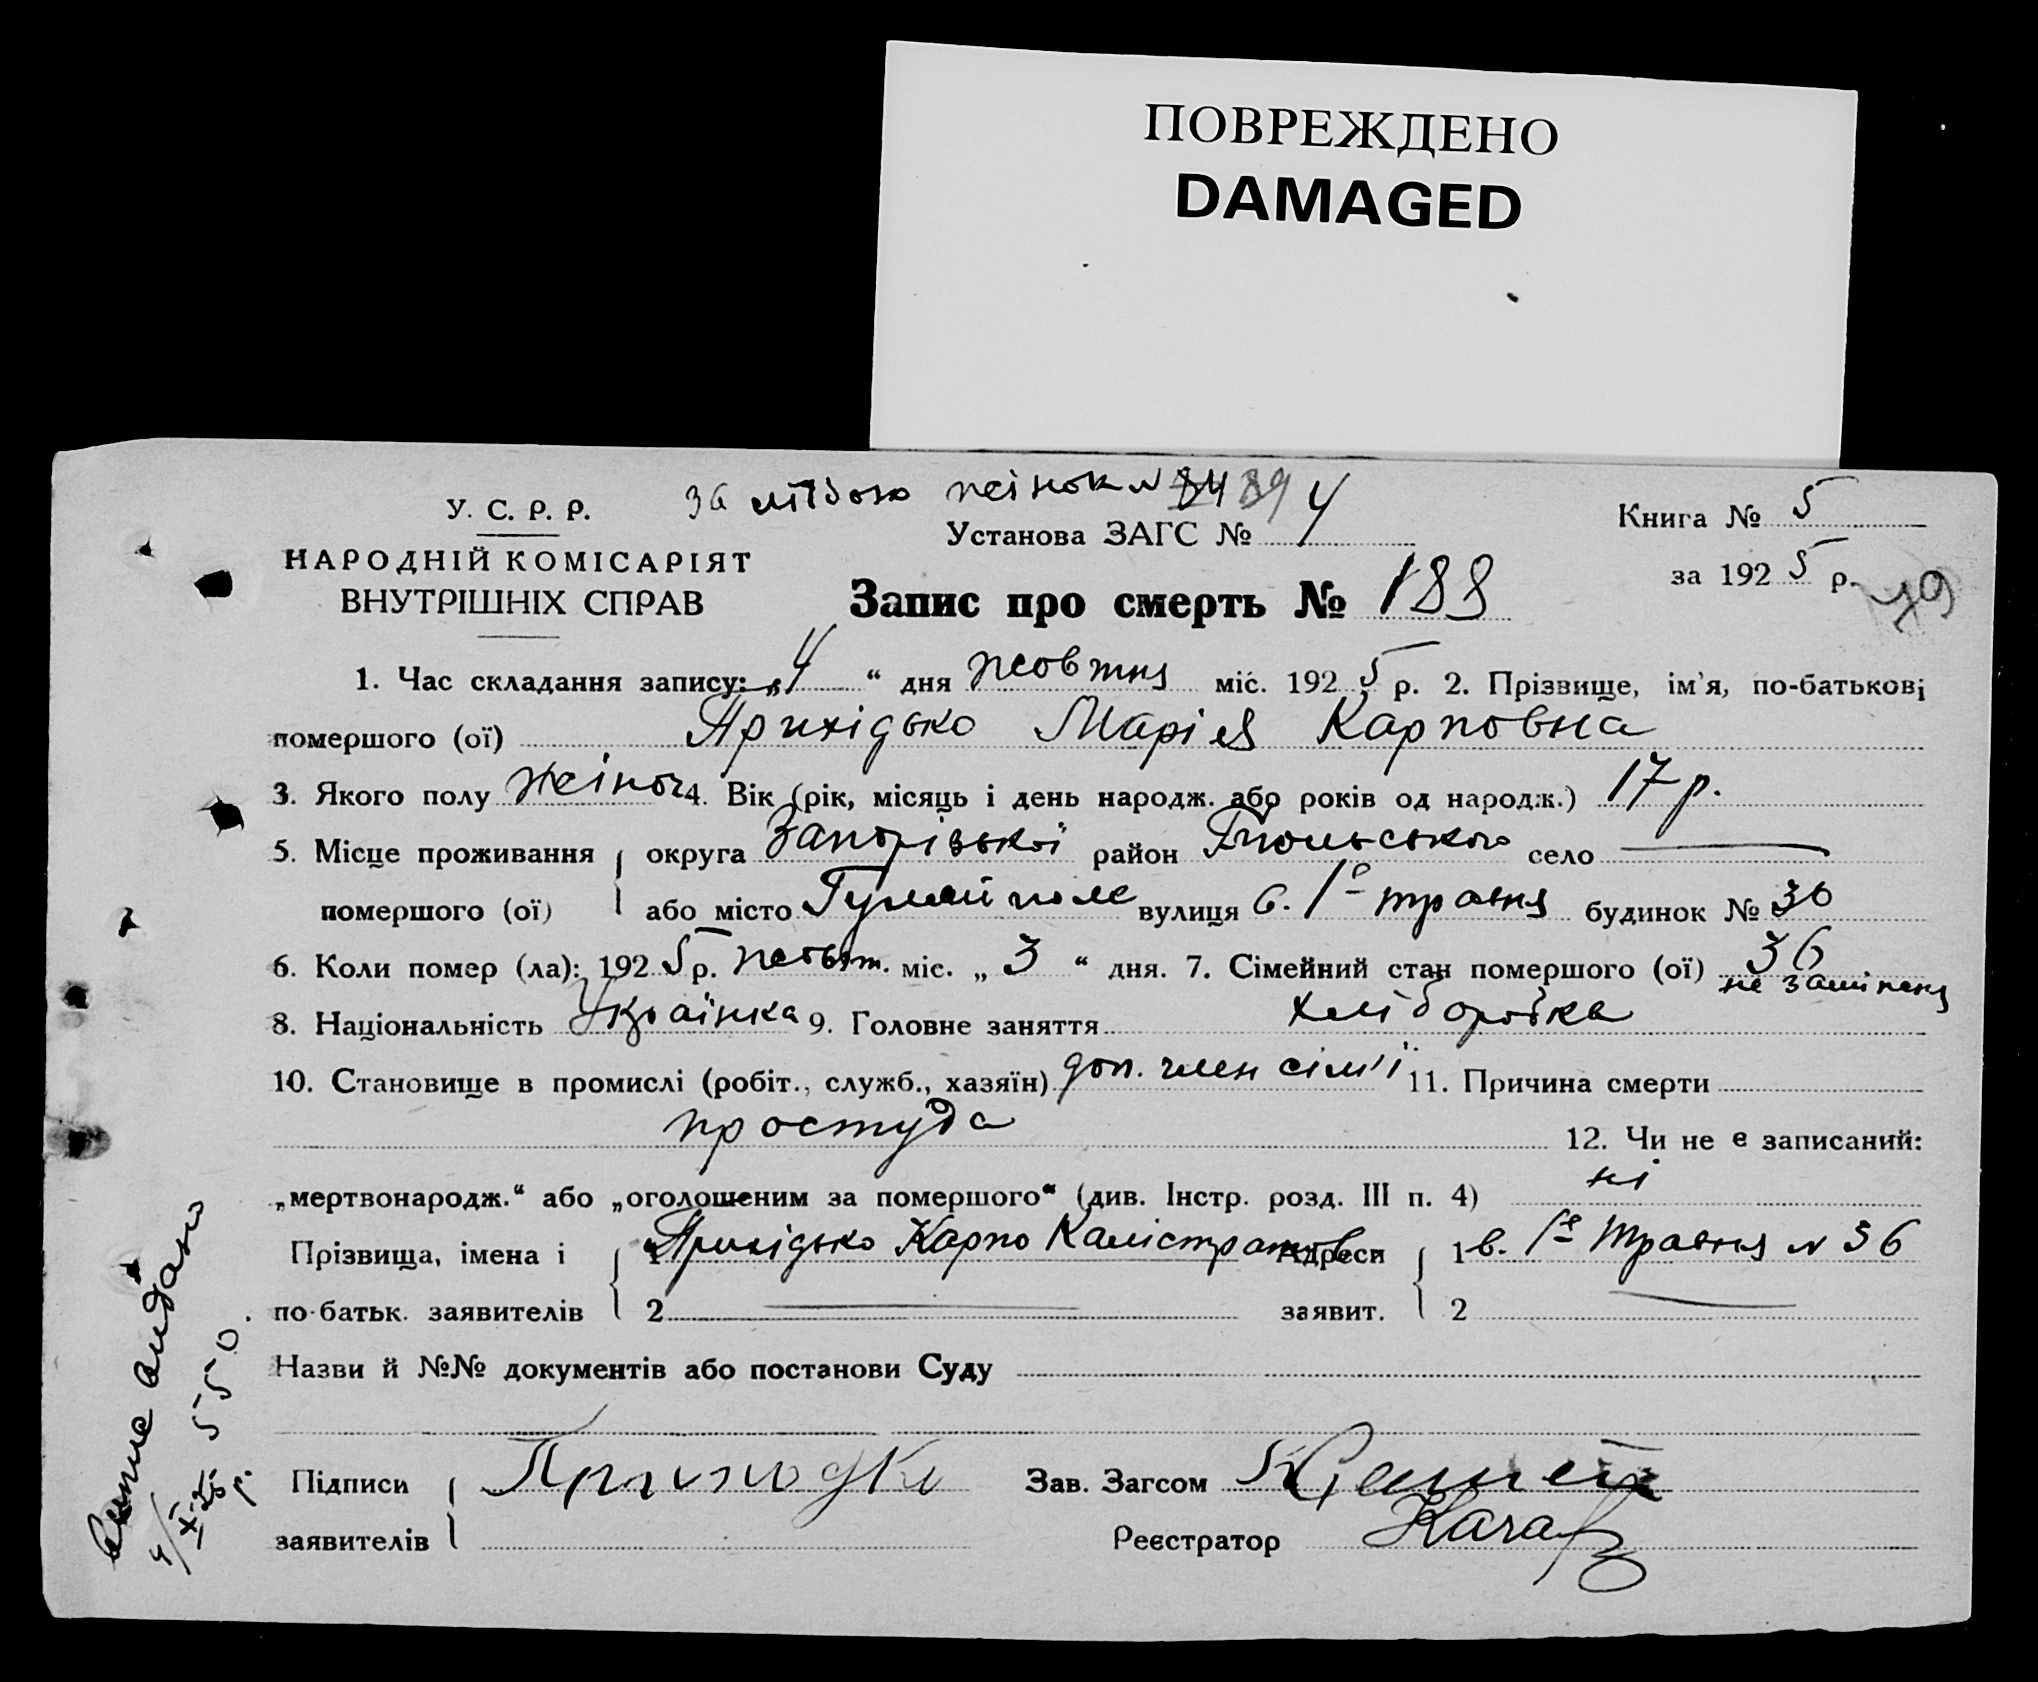 ПОВРЕЖДЕНО
DAMAGED
У. С. Р. Р.
НАРОДНІЙ КОМІСАРІЯТ
ВНУТРІШНІХ СПРАВ
за лічбою жінок № 84 89
Установа ЗАГС № 4
Книга № 5
за 192 5 р.
79
Запис про смерть № 188
1. Час складання запису: „4“ дня жовтня міс. 192 5 р. 2. Прізвище, ім'я, по-батькові
помершого (ої) Прихідько Марія Карповна
3. Якого полу жіноч 4. Вік (рік, місяць і день народж. або років од народж.) 17 р.
5. Місце проживання округа Запорізької район Гпольського село —
помершого (ої) або місто Гуляйполе вулиця в. 1е травня будинок № 36
6. Коли помер (ла): 192 5 р. жовт. міс. „ 3 “ дня. 7. Сімейний стан помершого (ої)
не заміжня
8. Національність Українка 9. Головне заняття хліборобка
10. Становище в промислі (робіт., служб., хазяїн) доп. член сім'ї 11. Причина смерти
простуда 12. Чи не е записаний:
„мертвонародж.“ або „оголошеним за помершого“ (див. Інстр. розд. III п. 4) ні
Прізвища, імена і 1 Прихідько Карпо Калістратов. Адреси 1 в. 1е Травня № 36
по-батьк. заявителів 2 — заявит. 2 —
Назви й №№ документів або постанови Суду
Підписи Приходко Зав. Загсом
заявителів Реєстратор
видано
4/X-25 р. 550.